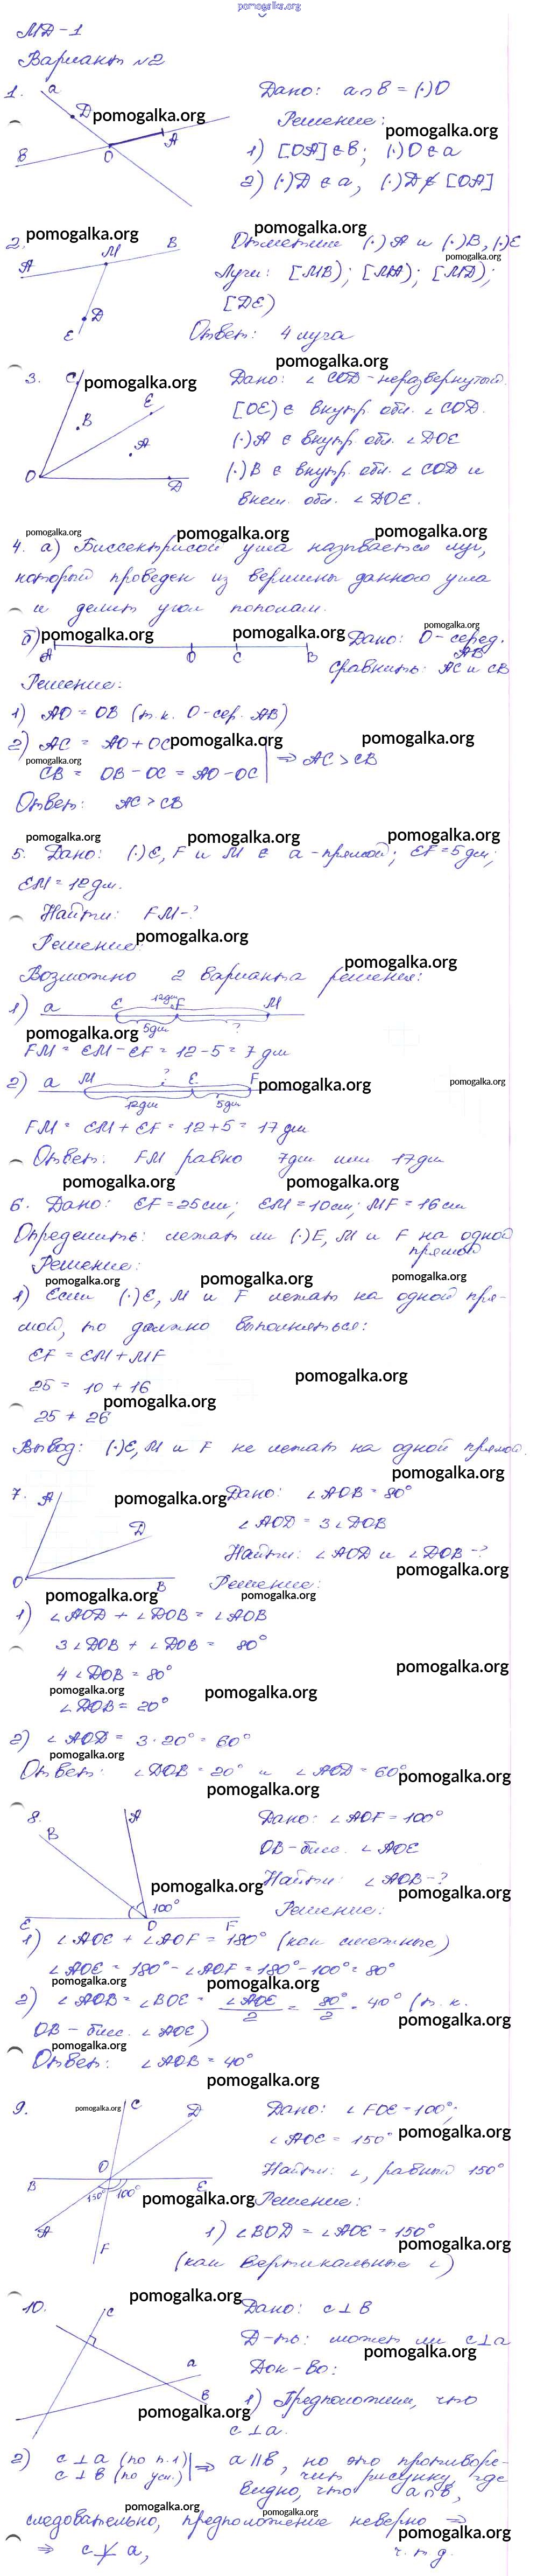 pomogalka.org
МД-1
Вариант №2
1. a D pomogalka.org Дано: a∩в = (·)O
в O A Решение: pomogalka.org
1) [OA] ∈ в; (·)O ∈ a
2) (·)D ∈ a, (·)D ∉ [OA]
2. pomogalka.org pomogalka.org
A M B Отметим (·)A и (·)B, (·)E
pomogalka.org
Лучи: [MB); [MA); [MD);
D E [DE)
Ответ: 4 луча
pomogalka.org
3. C pomogalka.org Дано: ∠COD - неразвернутый
B E [OE) ∈ внутр. обл. ∠COD.
A (·)A ∈ внутр. обл. ∠DOE
O D (·)B ∈ внутр. обл. ∠COD и
внеш. обл. ∠DOE.
pomogalka.org pomogalka.org pomogalka.org
4. а) Биссектрисой угла называется луч,
который проведен из вершины данного угла
и делит угол пополам.
pomogalka.org
б) pomogalka.org pomogalka.org Дано: O - серед.
A O C B AB
Сравнить: AC и CB
Решение:
1) AO = OB (т.к. O - сер. AB)
2) AC = AO + OC pomogalka.org pomogalka.org
pomogalka.org ⇒ AC > CB
CB = OB - OC = AO - OC
Ответ: AC > CB
pomogalka.org pomogalka.org pomogalka.org
5. Дано: (·)E, F и M ∈ a - прямой; EF = 5 дм;
EM = 12 дм.
Найти: FM - ?
Решение: pomogalka.org
pomogalka.org
Возможно 2 варианта решения:
1) a E 12дм F M
pomogalka.org 5дм ?
FM = EM - EF = 12 - 5 = 7 дм
2) a M ? E F pomogalka.org pomogalka.org
12дм 5дм
FM = EM + EF = 12 + 5 = 17 дм
Ответ: FM равно 7дм или 17дм
pomogalka.org pomogalka.org
6. Дано: EF = 25см; EM = 10см; MF = 16см
Определить: лежат ли (·)E, M и F на одной
прямой
Решение:
pomogalka.org pomogalka.org pomogalka.org
1) Если (·)E, M и F лежат на одной пря-
мой, то должно выполняться:
EF = EM + MF
pomogalka.org
25 = 10 + 16
pomogalka.org
25 ≠ 26
Вывод: (·)E, M и F не лежат на одной прямой.
pomogalka.org
7. A pomogalka.org Дано: ∠AOB = 80°
D ∠AOD = 3∠DOB
Найти: ∠AOD и ∠DOB - ?
pomogalka.org
O B Решение:
pomogalka.org pomogalka.org
1) ∠AOD + ∠DOB = ∠AOB
3∠DOB + ∠DOB = 80°
pomogalka.org
4∠DOB = 80°
pomogalka.org pomogalka.org
∠DOB = 20°
2) ∠AOD = 3 · 20° = 60°
pomogalka.org
Ответ: ∠DOB = 20° и ∠AOD = 60° pomogalka.org
pomogalka.org
8. A Дано: ∠AOF = 100°
B OB - бисс. ∠AOE
Найти: ∠AOB - ?
pomogalka.org pomogalka.org
100° Решение:
E O F
1) ∠AOE + ∠AOF = 180° (как смежные)
∠AOE = 180° - ∠AOF = 180° - 100° = 80°
pomogalka.org pomogalka.org
2) ∠AOB = ∠BOE = ∠AOE/2 = 80°/2 = 40° (т.к.
pomogalka.org
OB - бисс. ∠AOE)
pomogalka.org
Ответ: ∠AOB = 40°
pomogalka.org
9. pomogalka.org C D Дано: ∠FOE = 100°;
∠AOE = 150° pomogalka.org
O Найти: ∠, равный 150°
B E
150° 100° pomogalka.org Решение:
A 1) ∠BOD = ∠AOE = 150°
pomogalka.org
F (как вертикальные ∠)
pomogalka.org
10. c Дано: c ⊥ в
Д-ть: может ли c ⊥ a
pomogalka.org
a Док-во:
в 1) Предположим, что
pomogalka.org
c ⊥ a.
2) c ⊥ a (по п.1) ⇒ a ∥ в, но это противоре-
c ⊥ в (по усл.) чит рисунку, где
видно, что a∩в,
pomogalka.org pomogalka.org pomogalka.org
следовательно, предположение неверно ⇒
pomogalka.org
⇒ c ⊥̸ a, ч.т.д.